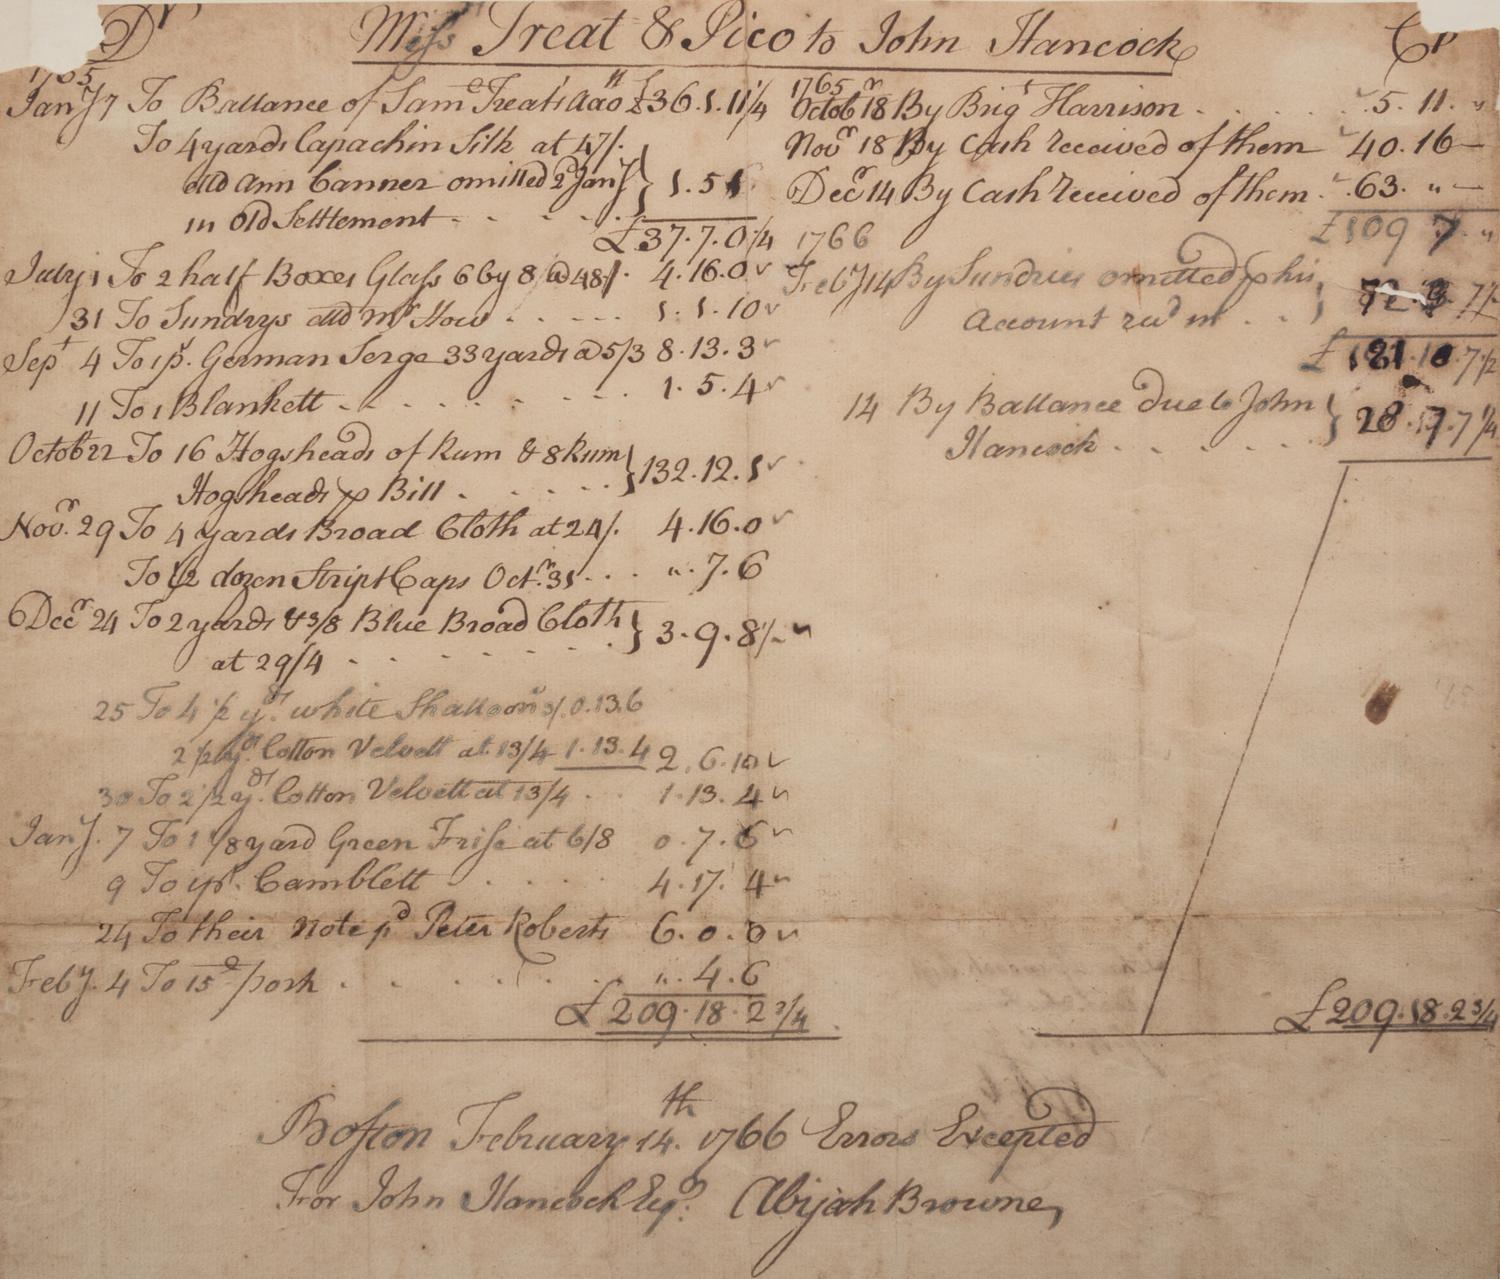 Dr Mess Treat & Pico to John Hancock Cr
1765
Jany 7 To Ballance of Same Treats Acco £36.1.11 1/4
To 4 yards Capachin Silk at 47/.
dd Ann Canner omitted 2d Jany } 1.5.1
in Old Settlement
£37.7.0 1/4
July 1 To 2 half Boxes Glass 6 by 8 @ 48/. 4.16.0
31 To Sundrys dd Mr How 1.1.10
Sept 4 To 1 ps. German Serge 33 yards @ 5/3 8.13.3
11 To 1 Blankett 1.5.4
Octob 22 To 16 Hogsheads of Rum & 8 Rum
Hogsheads p Bill } 132.12.1
Novr. 29 To 4 yards Broad Cloth at 24/. 4.16.0
To 1/2 dozen Stript Caps Octr. 31 ".7.6
Decr 24 To 2 yards & 3/8 Blue Broad Cloth
at 29/4 } 3.9.8 1/2
25 To 4 1/2 yds. white Shalloon 3/. 0.13.6
2 1/2 yds. Cotton Velvett at 13/4 1.13.4 2.6.10
30 To 2 1/2 yds. Cotton Velvett at 13/4 1.13.4
Jany. 7 To 1 1/8 yard Green Frise at 6/8 0.7.6
9 To 1 ps. Camblett 4.17.4
24 To their Note pd Peter Roberts 6.0.0
Feby. 4 To 15 pork ".4.6
£209.18.2 3/4
1765
Octobr 18 By Brigt Harrison 5.11."
Novr 18 By Cash received of them 40.16—
Decr 14 By Cash received of them 63."—
£109 7."
1766
Feby 14 By Sundries omitted p his
Account recd in } 72.3.7 1/2
£181.10.7 1/2
14 By Ballance due to John
Hancock } 28.7.7 1/4
£209.18.2 3/4
Boston February 14th. 1766 Errors Excepted
For John Hancock Esqr. Abijah Browne